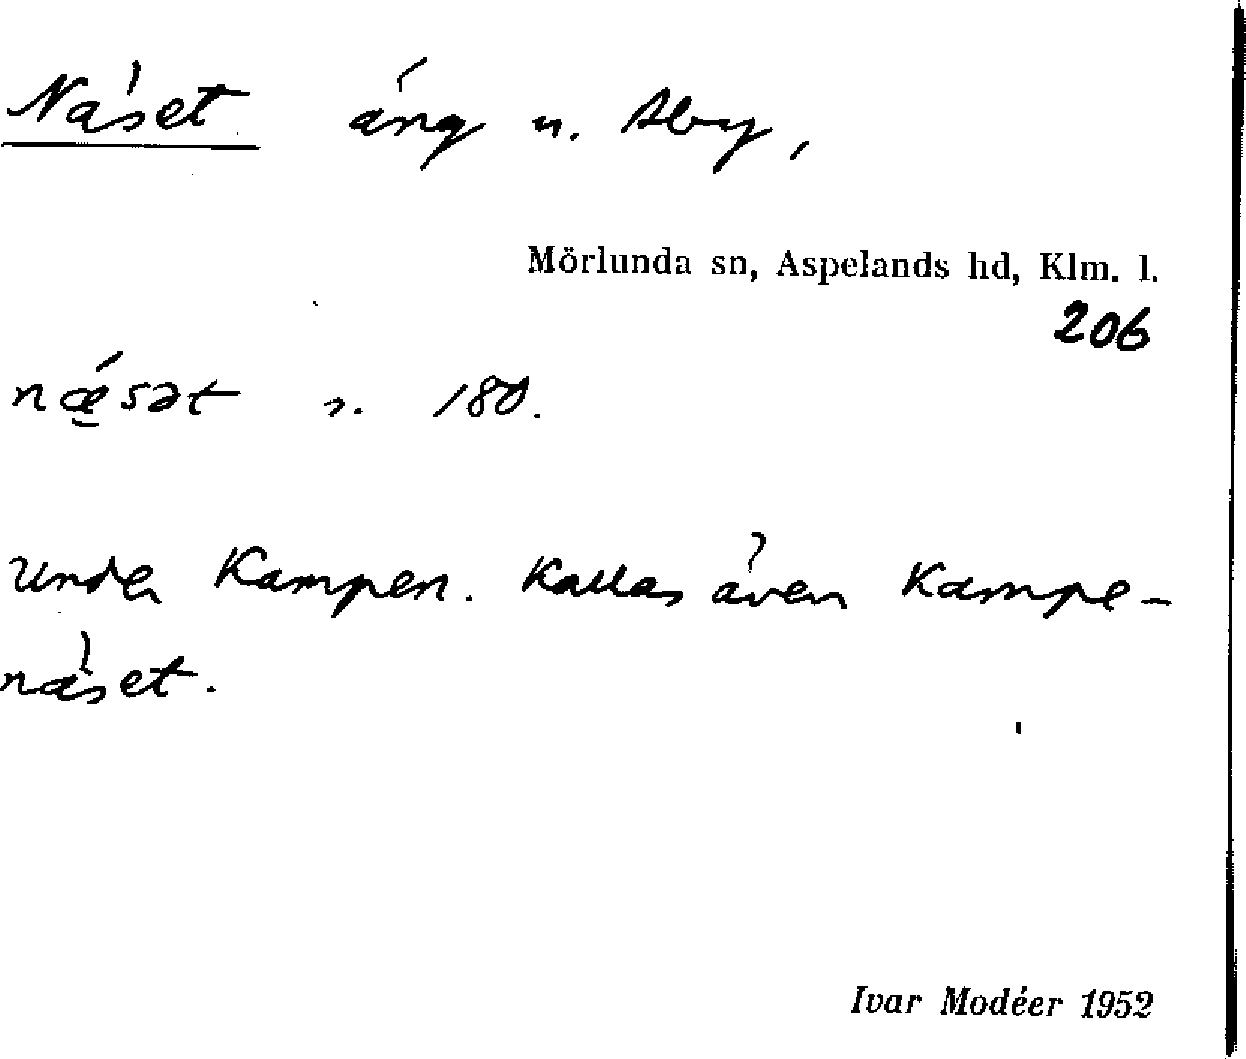 Näset äng u. Åby,
Mörlunda sn, Aspelands hd, Klm. l.
206
nǽ̱sət s. 180.
Under Kampen. Kallas även Kampe-
näset.
Ivar Modéer 1952